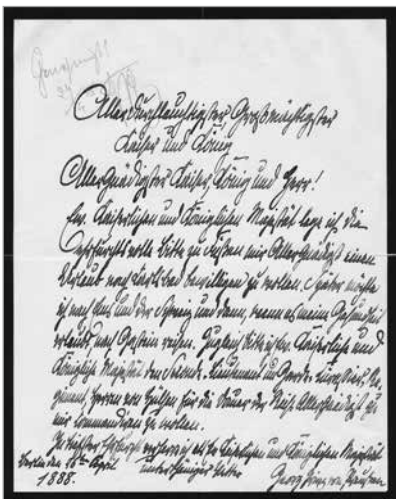 Genehmigt
24
Allerdurchlauchtigster Großmächtigster
Kaiser und König
Allergnädigster Kaiser, König und Herr!
Ew. Kaiserlichen und Königlichen Majestät lege ich die
Ehrfurchtsvolle Bitte zu Füßen mir Allergnädigst einen
Urlaub nach Karlsbad bewilligen zu wollen. Später möchte
ich nach und der Schweiz und dann, wenn es meine Gesundheit
erlaubt, nach Gastein reisen. Zugleich bitte ich Ew. Kaiserliche und
Königliche Majestät den Seconde-Lieutenant im Garde-Kürassier-Re-
giment, Herrn von Hülsen für die Dauer der Reise Allergnädigst zu
mir commandiren zu wollen.
In tiefster Ehrfurcht verharre ich als Ew. Kaiserlichen und Königlichen Majestät
Berlin den 18ten April unterthänigster
1888. Georg Prinz von Preußen